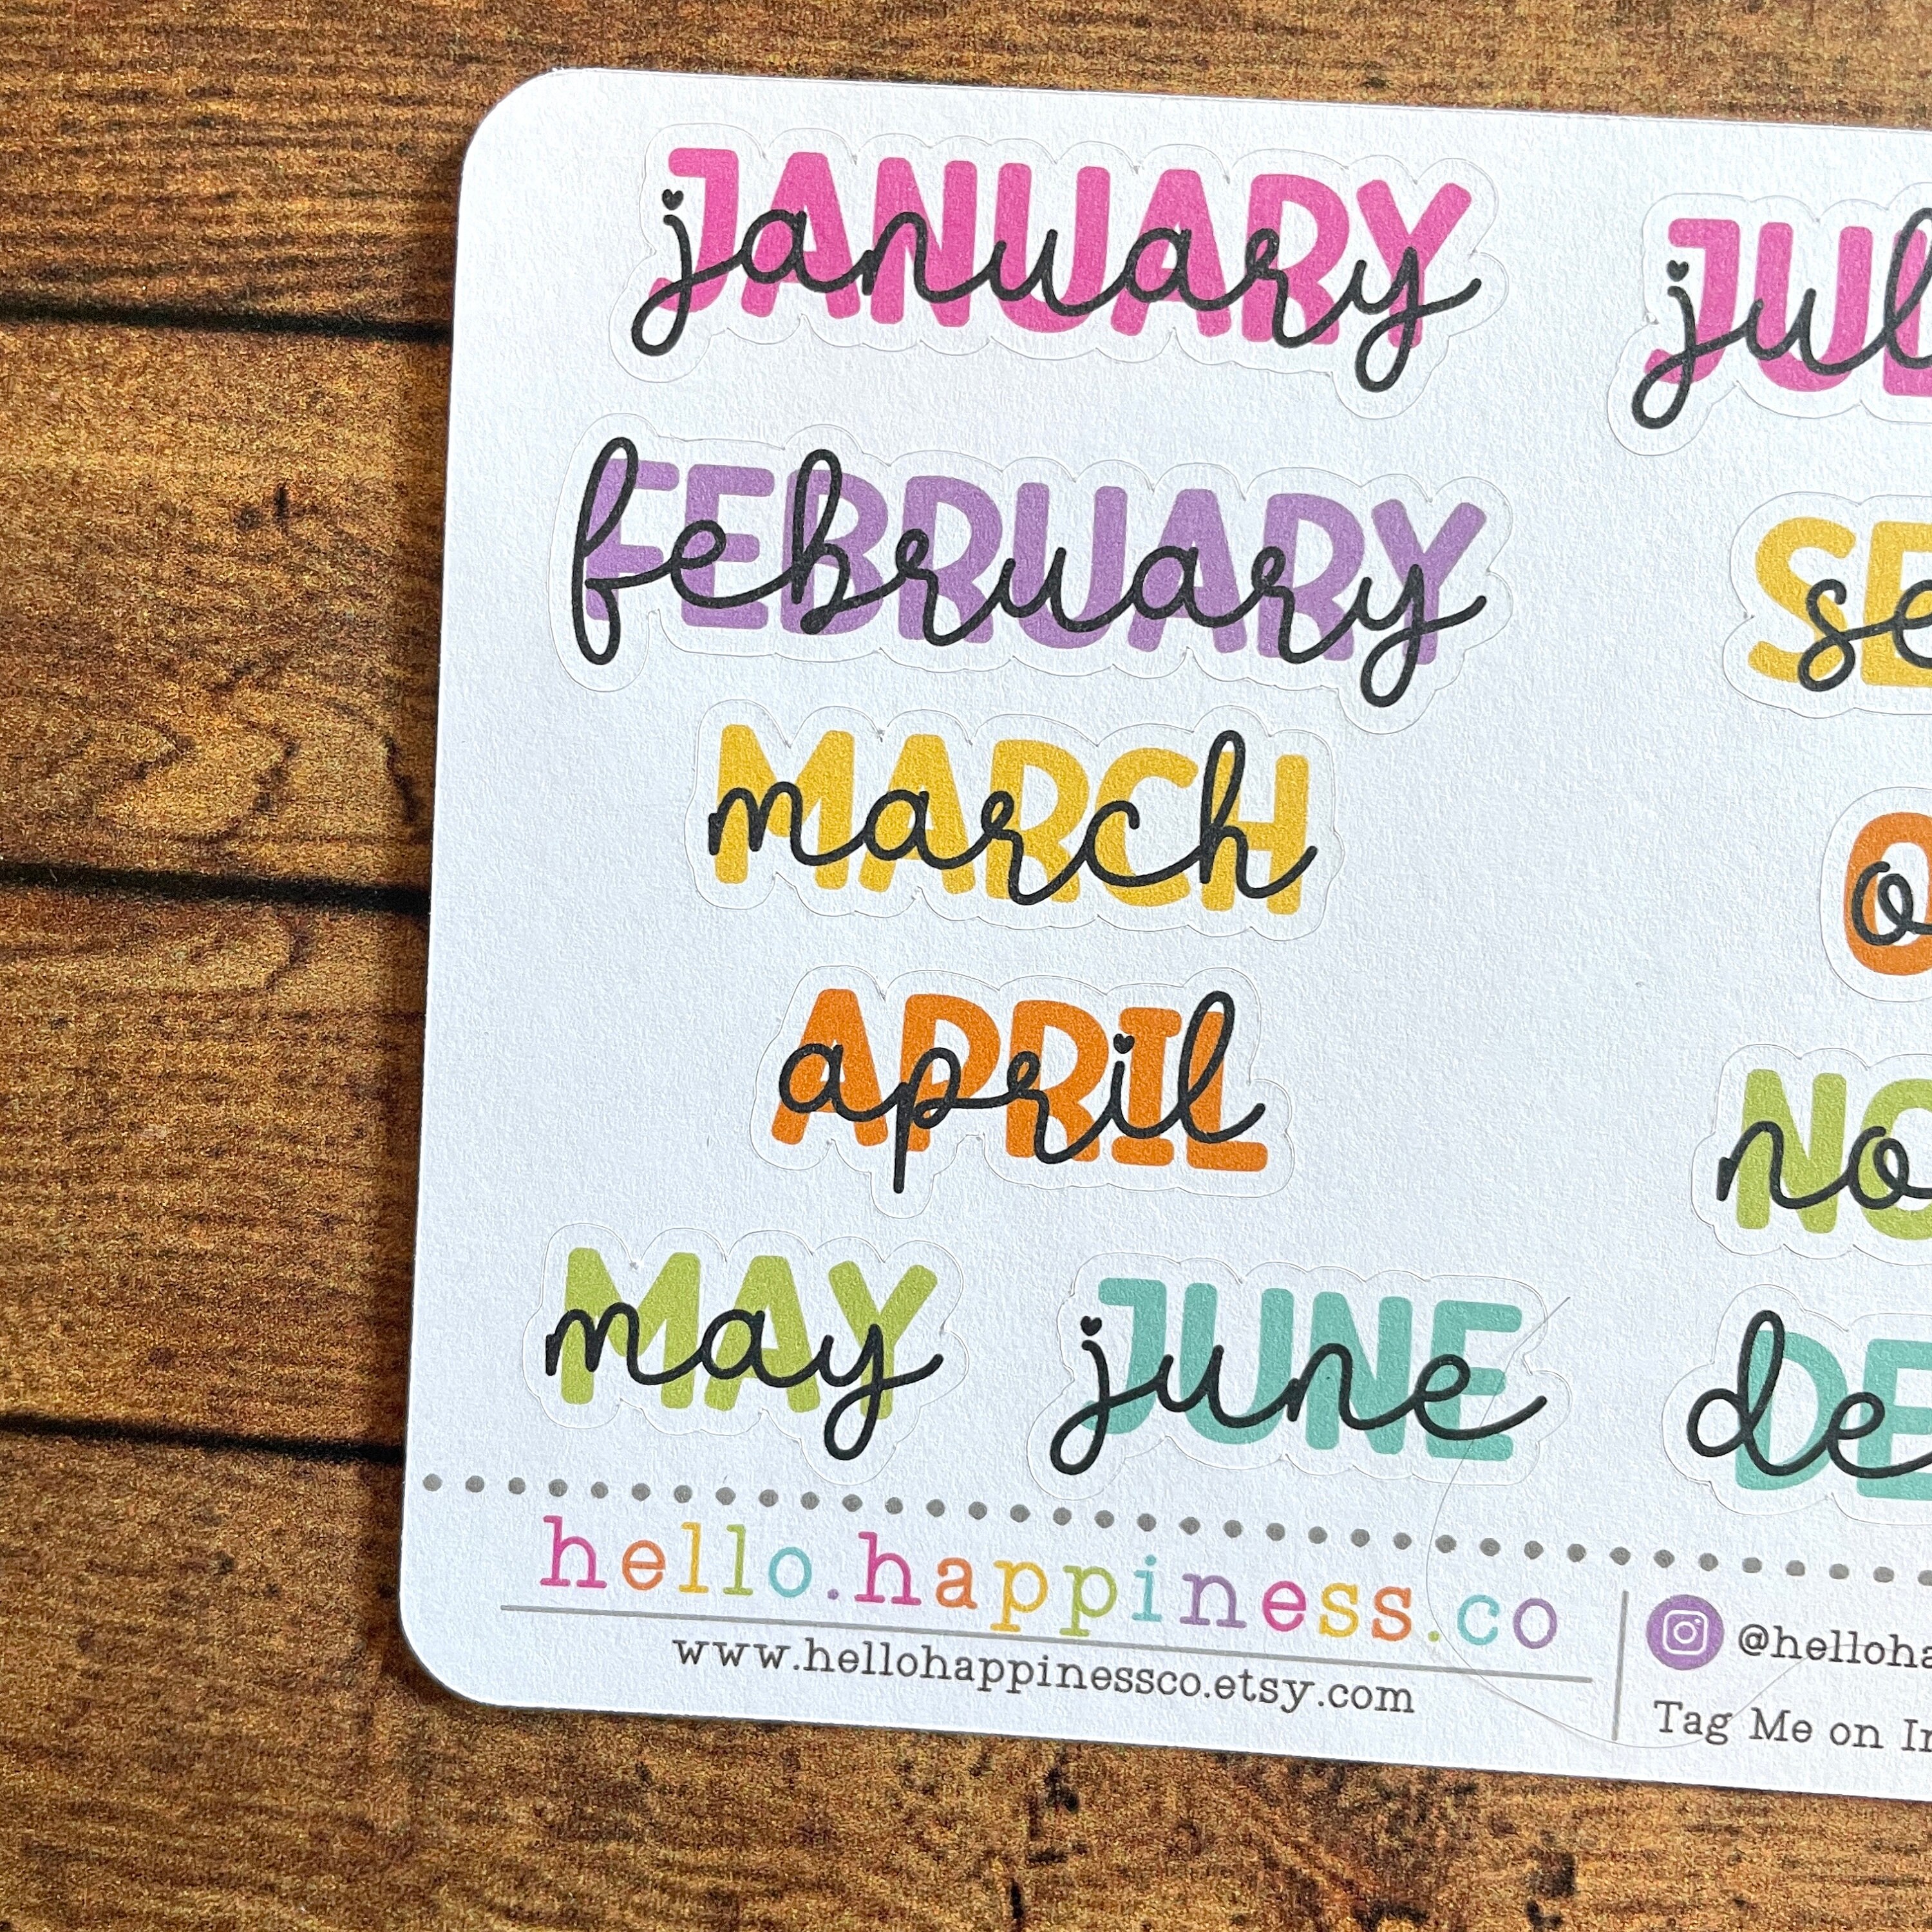 JANUARY
january
FEBRUARY
february
MARCH
march
APRIL
april
MAY
may
JUNE
june
JUL
jul
SE
se
O
o
NO
no
DE
de
hello.happiness.co
www.hellohappinessco.etsy.com
@helloha
Tag Me on In